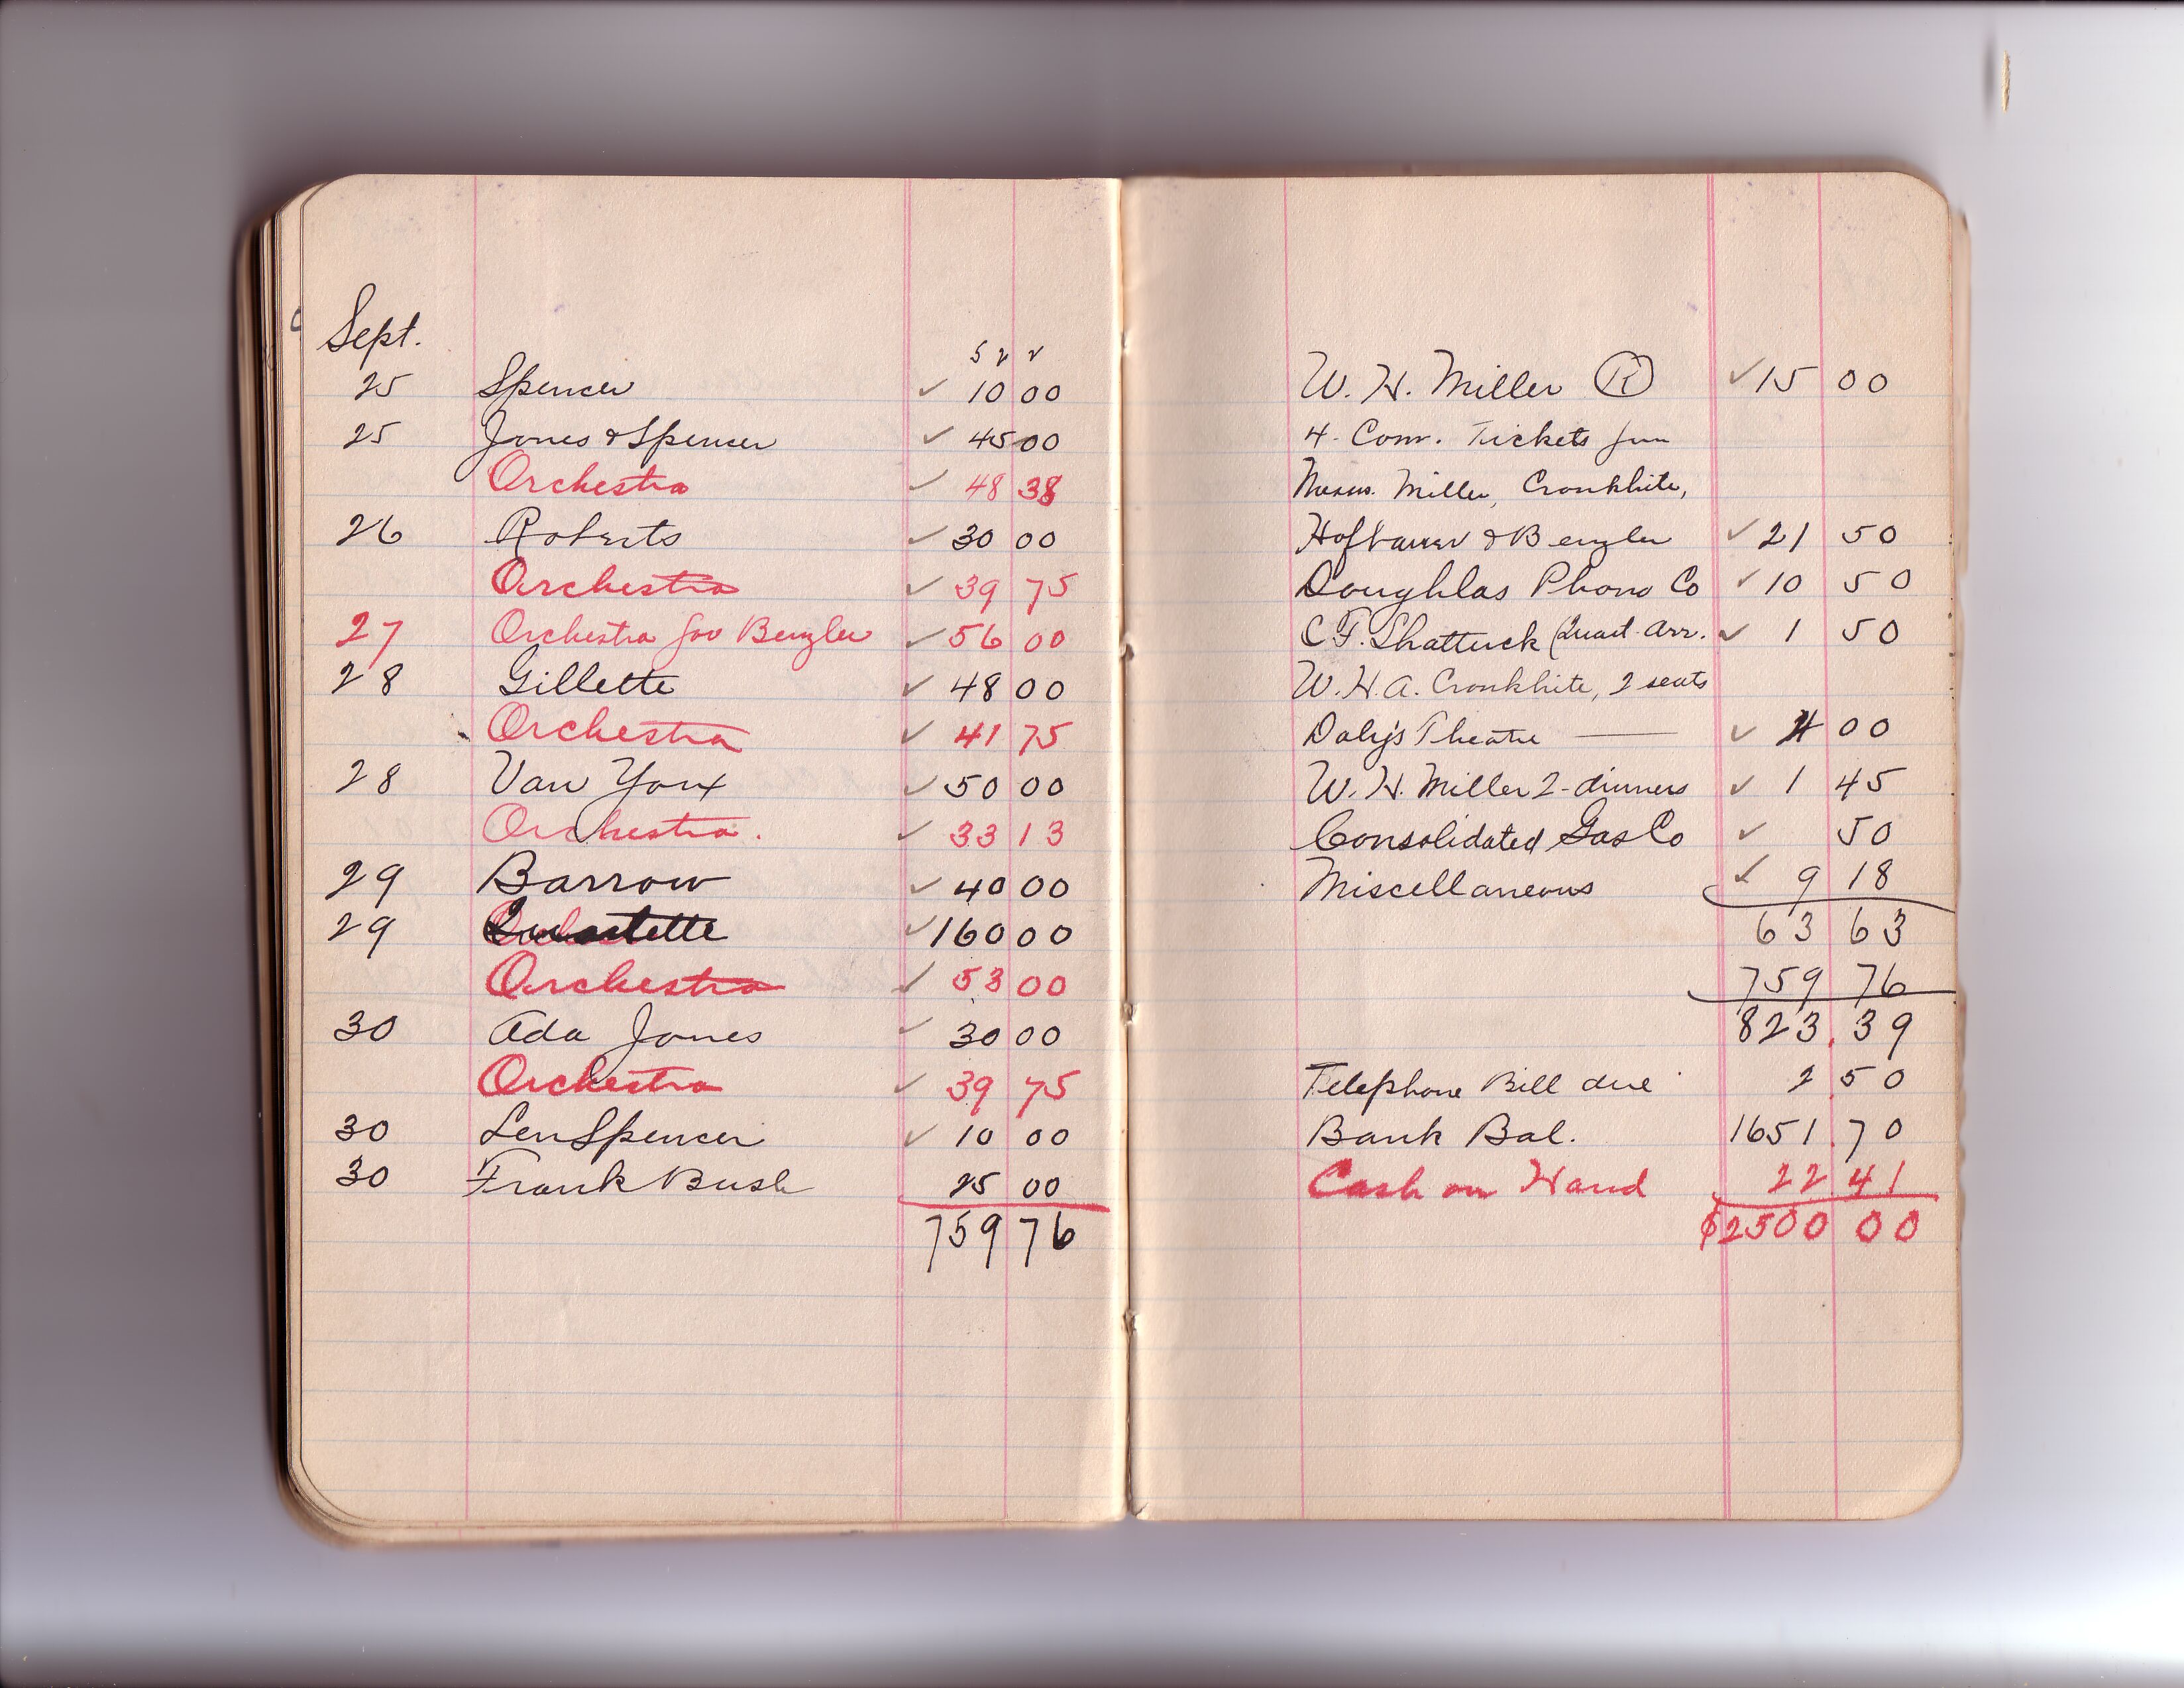 Sept.
5 2 2
25 Spencer ✓ 10 00
25 Jones & Spencer ✓ 45 00
Orchestra ✓ 48 38
26 Roberts ✓ 30 00
Orchestra ✓ 39 75
27 Orchestra for Benzler ✓ 56 00
28 Gillette ✓ 48 00
Orchestra ✓ 41 75
28 Van York ✓ 50 00
Orchestra. ✓ 33 13
29 Barrow ✓ 40 00
29 Quartette ✓ 160 00
Orchestra ✓ 53 00
30 Ada Jones ✓ 30 00
Orchestra ✓ 39 75
30 Len Spencer ✓ 10 00
30 Frank Bush 25 00
759 76
W. H. Miller Ⓡ ✓ 15 00
4. Com. Tickets for
Messrs. Miller, Cronkhite,
Hofbauer & Benzler ✓ 21 50
Doughlas Phono Co ✓ 10 50
C. F. Shattuck (Quart. Arr. ✓ 1 50
W. H. A. Cronkhite, 2 seats
Daly's Theatre — ✓ 4 00
W. H. Miller 2-dinners ✓ 1 45
Consolidated Gas Co ✓ 50
Miscellaneous ✓ 9 18
63 63
759 76
823.39
Telephone Bill due 2.50
Bank Bal. 1651.70
Cash on Hand 22 41
$2500 00